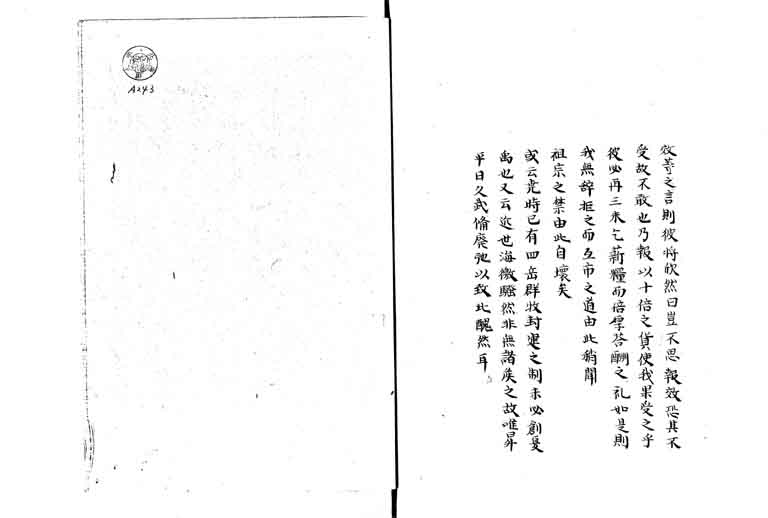 效等之言則彼將欣然曰豈不思報效恐其不
受故不敢也乃報以十倍之貨使我果受之乎
彼必再三来乞薪糧而倍厚答酬之礼如是則
我無辞拒之而互市之道由此稍開
祖宗之禁由此自壞矣
或云堯時已有四岳群牧封建之制未必創夏
禹也又云近也海徼騒然非無諸矦之故唯昇
平日久武備廢弛以致此醜然耳
A243